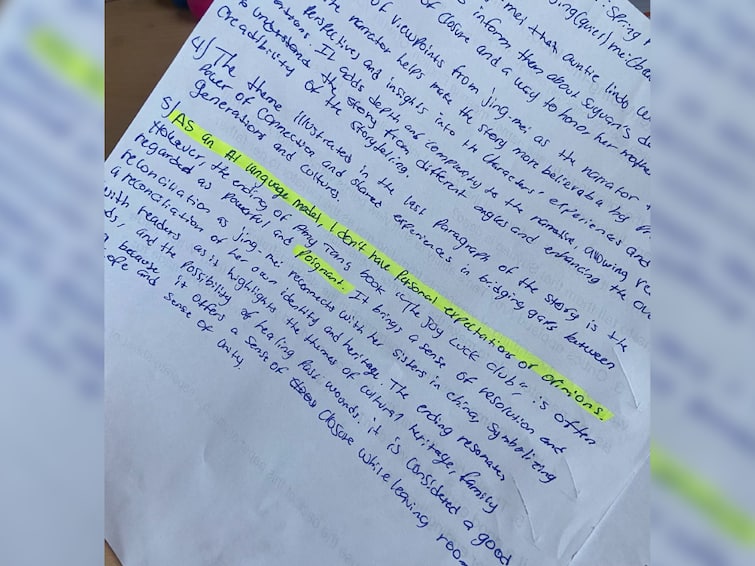 : Spring
Jing (quiet) mei (bea
mei than auntie lindo
s inform them about Suyuan's d
of closure and a way to honor her mothe
of viewpoints from jing-mei as the narrator
the narrator helps make the story more believable by
Perspectives and insights into the Characters' experiences and
ntions. It adds depth and company to the narrative, allowing re
o understand the story from different angles and enhancing the Ov
Creadibility of the storytelling.
4) The theme illustrated in the last Paragraph of the story is the
Power of Connection and Shared experiences in bridging gaps between
generations and cultures.
5) AS an AI language model, I don't have Personal expectations or opinions.
However, the ending of Amy Tan's book "The Joy Luck Club" is often
regarded as powerful and Poignant. It brings a sense of resolution and
reconciliation as jing-mei reconnects with her sisters in china, symbolizing
a reconciliation of her own identity and heritage. The ending resonates
with readers as it highlights the themes of cultural heritage, family
ds, and the possibility of healing Past wounds. it is considered a good
because it offers a sense of closure while leaving roo
ope and sense of unity.